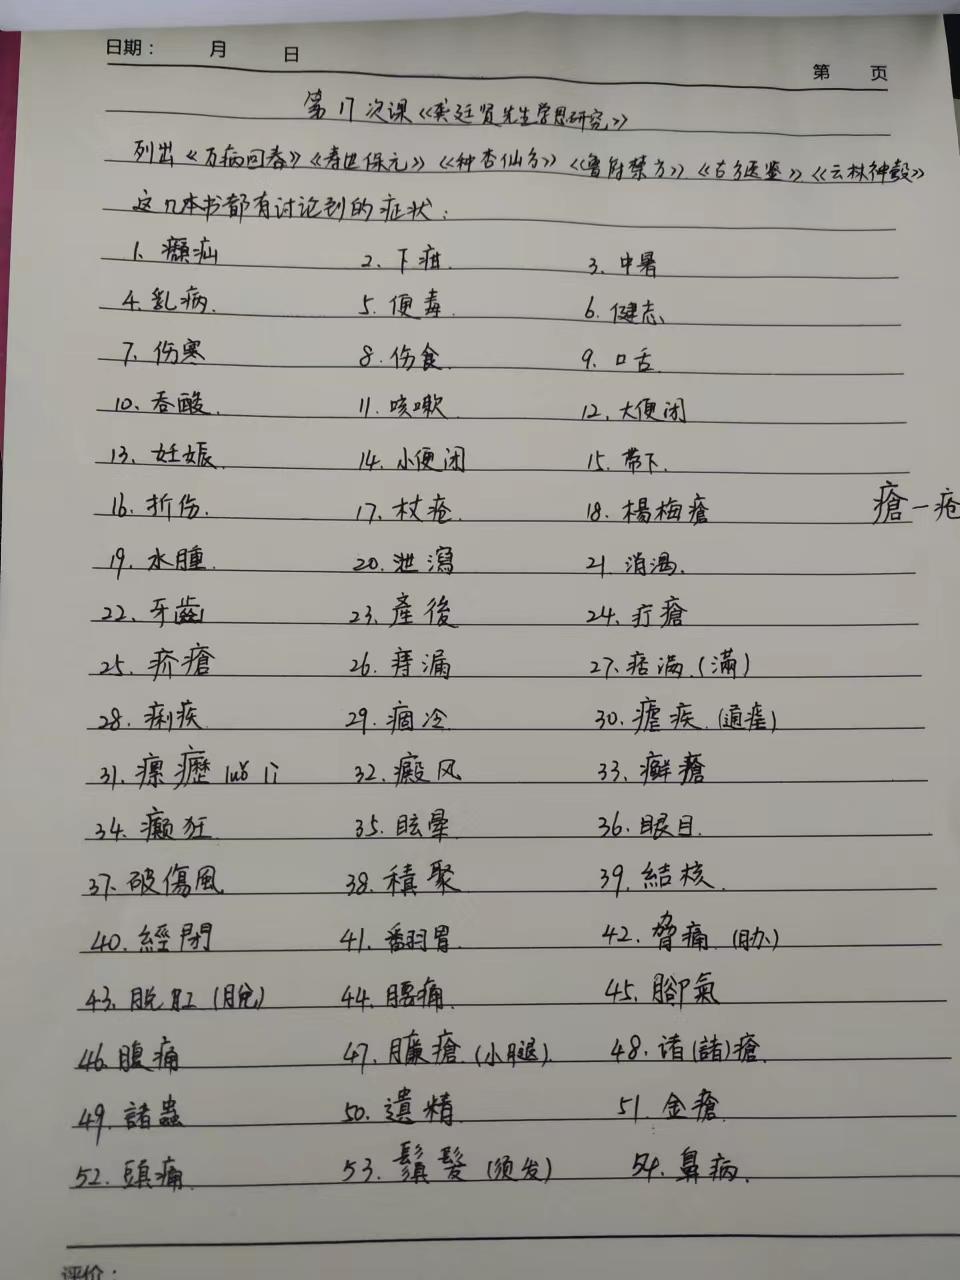 日期： 月 日
第 页
第17次课《龚廷贤先生学思研究》
列出《万病回春》《寿世保元》《种杏仙方》《鲁府禁方》《古今医鉴》《云林神彀》
这几本书都有讨论到的症状：
1. 癫疝 2. 下疳 3. 中暑
4. 乳病. 5. 便毒 6. 健忘
7. 伤寒 8. 伤食 9. 口舌
10. 吞酸 11. 咳嗽 12. 大便闭
13. 妊娠 14. 小便闭 15. 带下.
16. 折伤. 17. 杖疮. 18. 楊梅瘡 瘡一疮
19. 水腫. 20. 泄瀉 21 消渴.
22. 牙齒 23. 產後 24. 疔瘡
25. 疥瘡 26. 痔漏 27. 痞满.(滿)
28. 痢疾 29. 痼冷 30. 瘧疾.(通瘧)
31. 瘰癧 luǒ lì 32. 癜风 33. 癬瘡
34. 癲狂 35. 眩晕 36. 眼目.
37. 破傷風 38. 積聚 39. 結核.
40. 經閉 41. 翻胃 42. 脅痛 (胁)
43. 脫肛(脱) 44. 腰痛. 45. 腳氣
46. 腹痛 47. 臁瘡 (小腿). 48. 诸(諸)瘡.
49. 諸蟲 50. 遺精 51. 金瘡.
52. 頭痛 53. 鬚髮 (须发) 54. 鼻病.
评价：